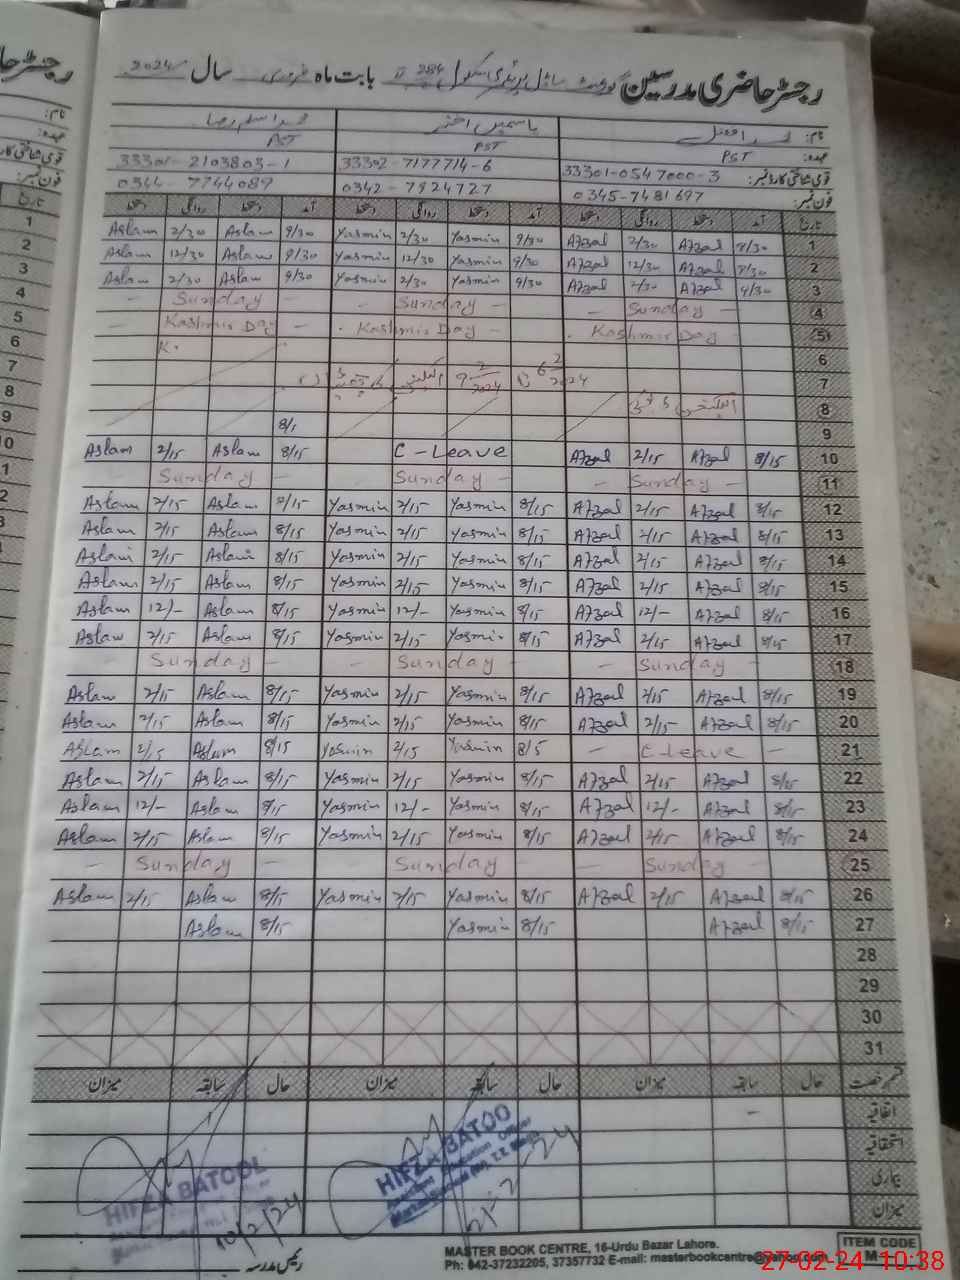 رجسٹر حاضری مدرسین گورنمنٹ ماڈل پرائمری سکول 284 بابت ماہ فروری سال 2024
نام: محمد افضل یاسمین اختر محمد اسلم رضا
عہدہ: PST PST PST
قومی شناختی کارڈ نمبر: 33301-0547000-3 33302-7177714-6 33301-2103803-1
فون نمبر: 0345-7481697 0342-7924727 0344-7744089
تاریخ آمد دستخط روانگی دستخط آمد دستخط روانگی دستخط آمد دستخط روانگی دستخط
Aslam 2/30 Aslam 9/30 Yasmin 2/30 Yasmin 9/30 Afzal 2/30 Afzal 9/30 1
Aslam 12/30 Aslam 9/30 Yasmin 12/30 Yasmin 9/30 Afzal 12/30 Afzal 9/30 2
Aslam 2/30 Aslam 9/30 Yasmin 2/30 Yasmin 9/30 Afzal 2/30 Afzal 9/30 3
- Sunday - - Sunday - - Sunday - 4
- Kashmir Day - Kashmir Day - Kashmir Day - 5
K. 6
9 2/2024 6 2/2024 7
8
8/1 9
Aslam 2/15 Aslam 8/15 C-Leave Afzal 2/15 Afzal 8/15 10
- Sunday - - Sunday - - Sunday - 11
Aslam 2/15 Aslam 8/15 Yasmin 2/15 Yasmin 8/15 Afzal 2/15 Afzal 8/15 12
Aslam 2/15 Aslam 8/15 Yasmin 2/15 Yasmin 8/15 Afzal 2/15 Afzal 8/15 13
Aslam 2/15 Aslam 8/15 Yasmin 2/15 Yasmin 8/15 Afzal 2/15 Afzal 8/15 14
Aslam 2/15 Aslam 8/15 Yasmin 2/15 Yasmin 8/15 Afzal 2/15 Afzal 8/15 15
Aslam 12/- Aslam 8/15 Yasmin 12/- Yasmin 8/15 Afzal 12/- Afzal 8/15 16
Aslam 2/15 Aslam 8/15 Yasmin 2/15 Yasmin 8/15 Afzal 2/15 Afzal 8/15 17
- Sunday - - Sunday - - Sunday - 18
Aslam 2/15 Aslam 8/15 Yasmin 2/15 Yasmin 8/15 Afzal 2/15 Afzal 8/15 19
Aslam 2/15 Aslam 8/15 Yasmin 2/15 Yasmin 8/15 Afzal 2/15 Afzal 8/15 20
Aslam 2/15 Aslam 8/15 Yasmin 2/15 Yasmin 8/5 - C-Leave - 21
Aslam 2/15 Aslam 8/15 Yasmin 2/15 Yasmin 8/15 Afzal 2/15 Afzal 8/15 22
Aslam 12/- Aslam 8/15 Yasmin 12/- Yasmin 8/15 Afzal 12/- Afzal 8/15 23
Aslam 2/15 Aslam 8/15 Yasmin 2/15 Yasmin 8/15 Afzal 2/15 Afzal 8/15 24
- Sunday - - Sunday - - Sunday - 25
Aslam 2/15 Aslam 8/15 Yasmin 2/15 Yasmin 8/15 Afzal 2/15 Afzal 8/15 26
Aslam 8/15 Yasmin 8/15 Afzal 8/15 27
28
29
30
31
قسم رخصت حال سابقہ میزان حال سابقہ میزان حال سابقہ میزان
اتفاقیہ -
استحقاقیہ
بیماری
میزان
HIFZA BATOOL
HIFZA BATOO
10/2/24
رئیس مدرسہ
MASTER BOOK CENTRE, 16-Urdu Bazar Lahore.
Ph: 042-37232205, 37357732 E-mail: masterbookcentre@yahoo.com
ITEM CODE
27-02-24 10:38